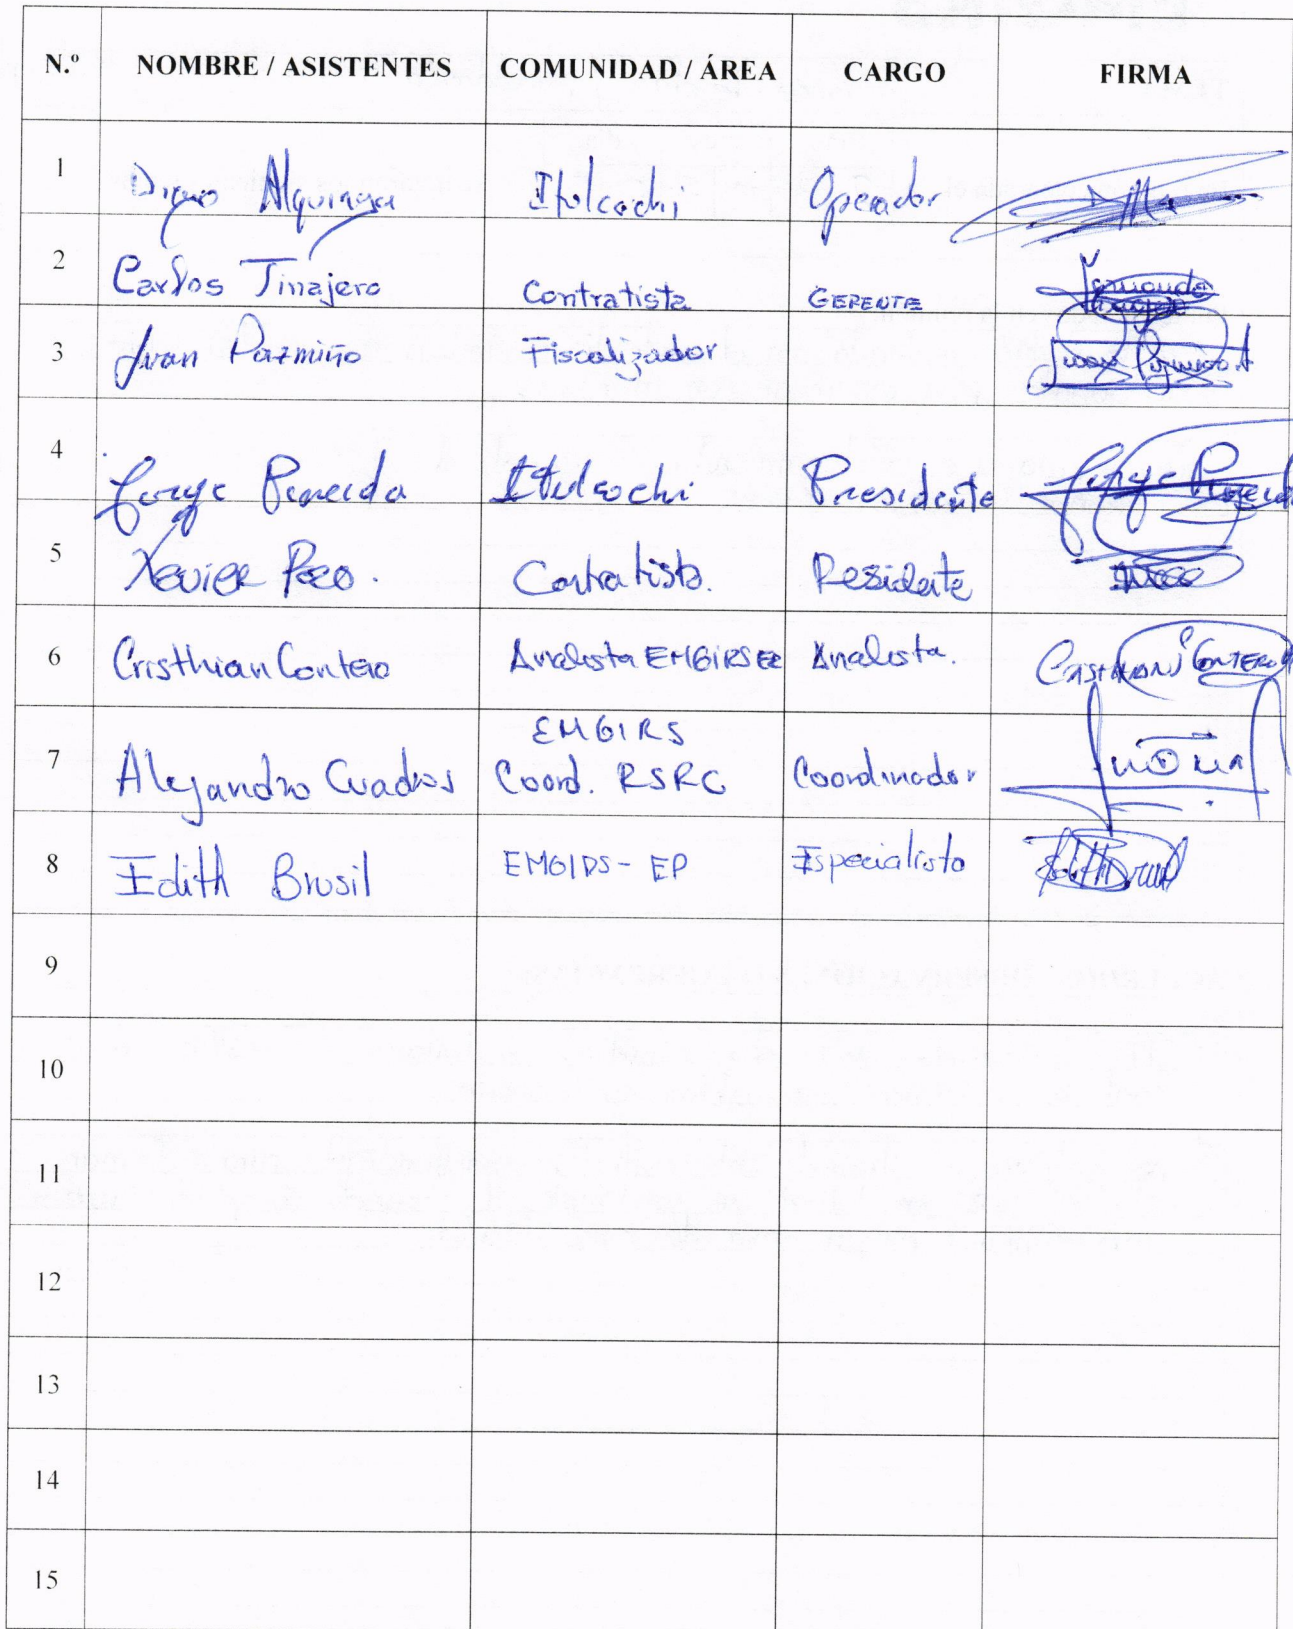 N.º NOMBRE / ASISTENTES COMUNIDAD / ÁREA CARGO FIRMA
1 Diego Alquinga Itulcachi Operador
2 Carlos Tinajero Contratista GERENTE
3 Juan Pazmiño Fiscalizador
4 Jorge Pineida Itulcachi Presidente Jorge Pineida
5 Xavier Pozo. Contratista. Residente
6 Cristhian Contero Analista EMGIRS EP Analista. CRISTHIAN CONTERO
EMGIRS
7 Alejandro Cuadros Coord. RSRC Coordinador
8 Edith Brusil EMGIRS - EP Especialista
9
10
11
12
13
14
15